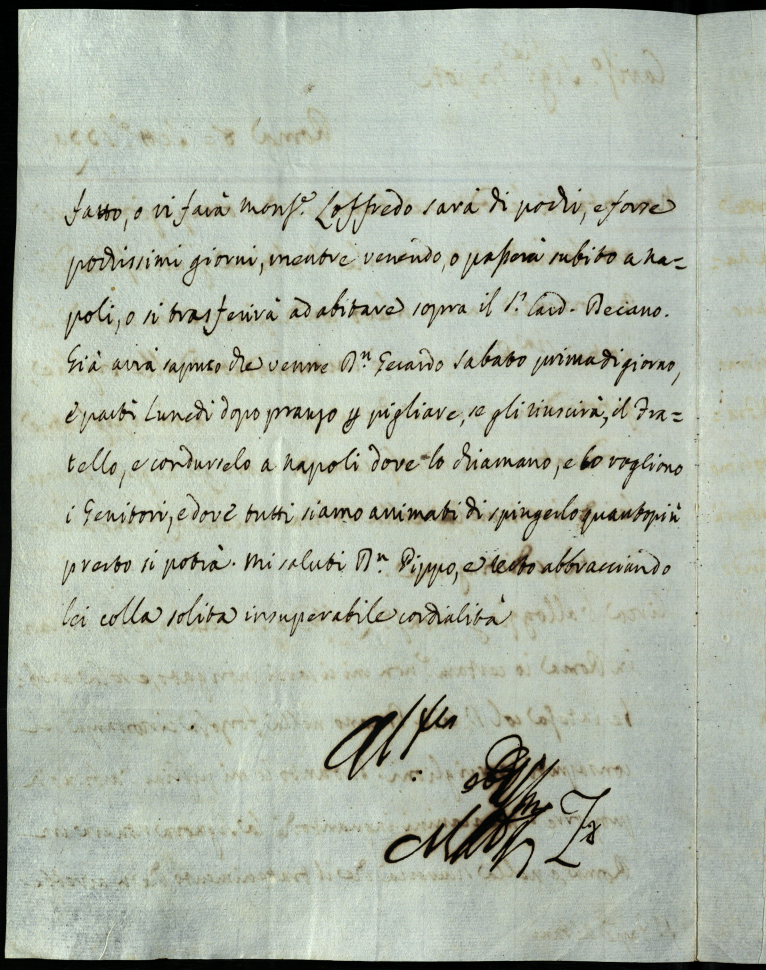 fatto, o vi farà Monsr. Loffredo sarà di pochi, e forse
pochissimi giorni, mentre venendo, o passerà subito a Na=
poli, o si trasferirà ad abitare sopra il Sr. Card. Decano.
Già avrà saputo che venne Dn. Gerardo Sabato prima di giorno,
e partì Lunedì dopo pranzo p pigliare, se gli riuscirà, il Fra=
tello, e condurselo a Napoli dove lo chiamano, e lo vogliono
i Genitori, e dove tutti siamo animati di spingerlo quanto più
presto si potrà. Mi saluti Dn. Pippo, e resto abbracciando
lei colla solita insuperabile cordialità